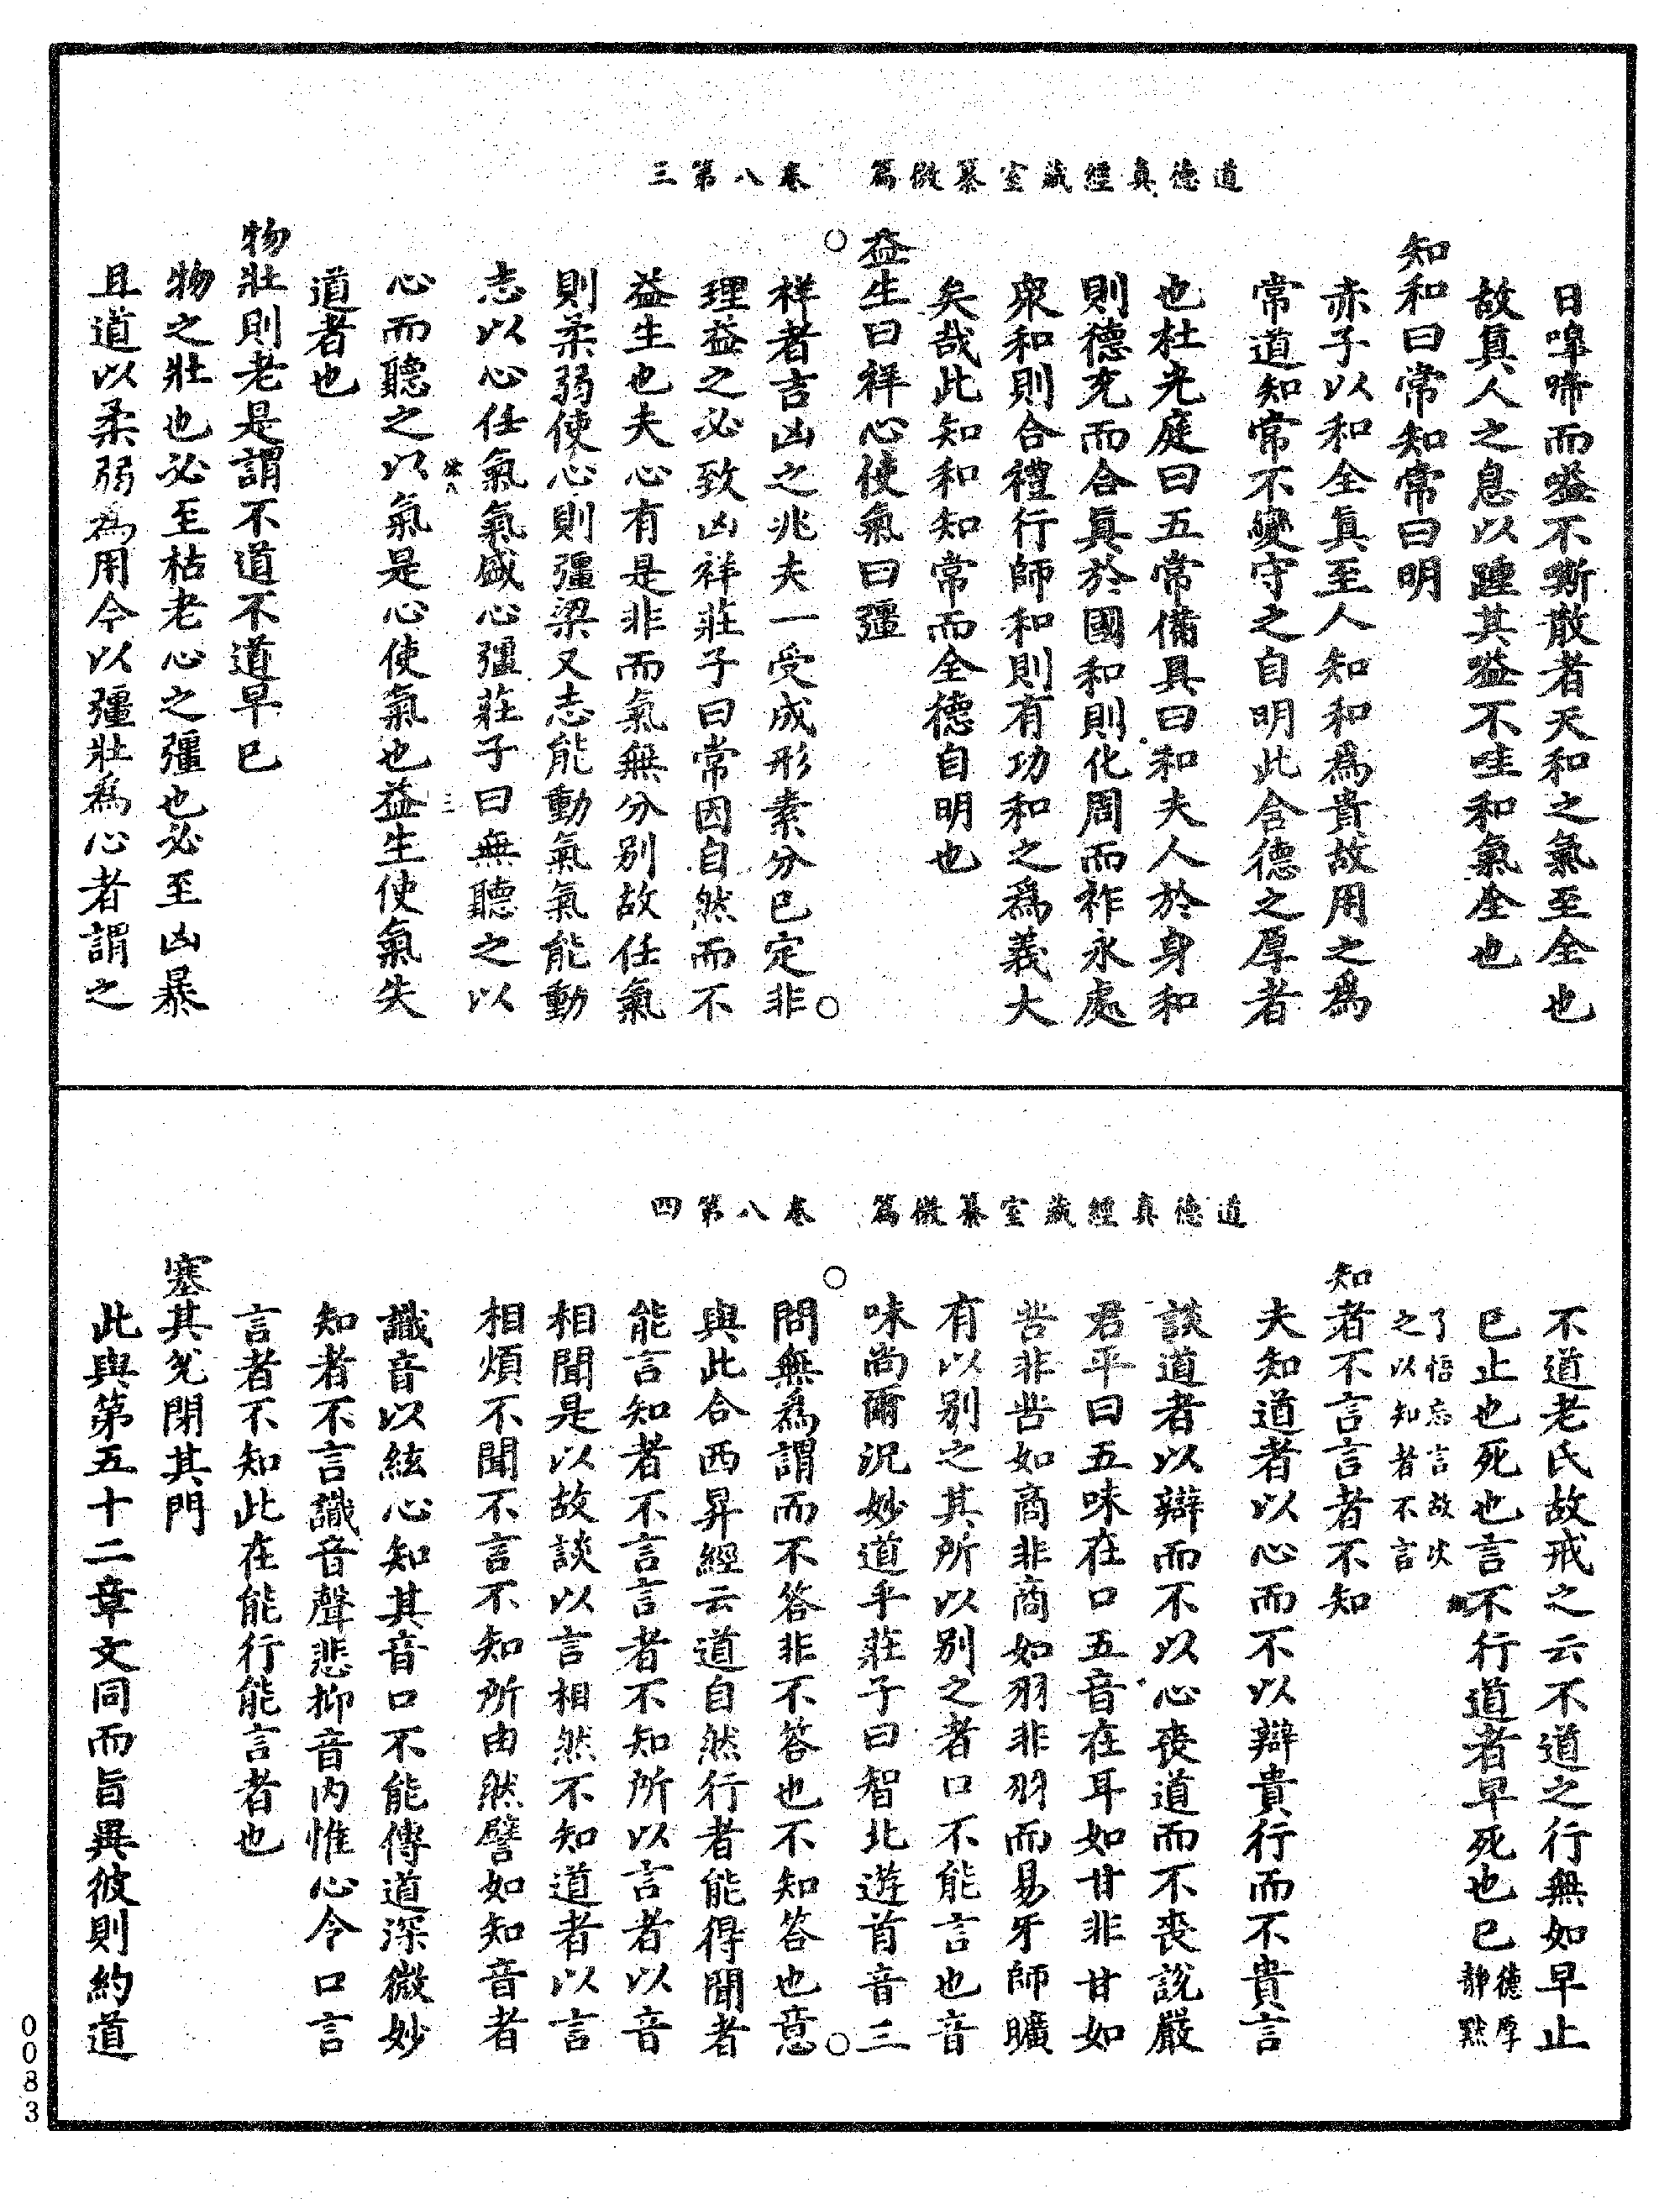 道德真經藏室纂微篇　卷八第三
日嘷啼而嗌不嘶散者天和之氣至全也
故真人之息以踵其嗌不哇和氣全也
知和曰常知常曰明
赤子以和全真至人知和為貴故用之為
常道知常不變守之自明此含德之厚者
也杜光庭曰五常備具曰和夫人於身和
則德充而合真於國和則化周而祚永處
衆和則合禮行師和則有功和之為義大
矣哉此知和知常而全德自明也
益生曰祥心使氣曰彊
祥者吉凶之兆夫一受成形素分已定非
理益之必致凶祥莊子曰常因自然而不
益生也夫心有是非而氣無分別故任氣
則柔弱使心則彊梁又志能動氣氣能動
志以心任氣氣盛心彊莊子曰無聽之以
心而聽之以氣是心使氣也益生使氣失
道者也
物壯則老是謂不道不道早已
物之壯也必至枯老心之彊也必至凶暴
且道以柔弱為用今以彊壯為心者謂之
道德真經藏室纂微篇　卷八第四
不道老氏故戒之云不道之行無如早止
已止也死也言不行道者早死也已德厚靜默
了悟忘言故次之以知者不言
知者不言言者不知
夫知道者以心而不以辯貴行而不貴言
談道者以辯而不以心喪道而不喪說嚴
君平曰五味在口五音在耳如甘非甘如
苦非苦如商非商如羽非羽而易牙師曠
有以別之其所以別之者口不能言也音
味尚爾況妙道乎莊子曰智北遊首音三
問無為謂而不答非不答也不知答也意
與此合西昇經云道自然行者能得聞者
能言知者不言言者不知所以言者以音
相聞是以故談以言相然不知道者以言
相煩不聞不言不知所由然譬如知音者
識音以絃心知其音口不能傳道深微妙
知者不言識音聲悲抑音內惟心令口言
言者不知此在能行能言者也
塞其兌閉其門
此與第五十二章文同而旨異彼則約道
0083